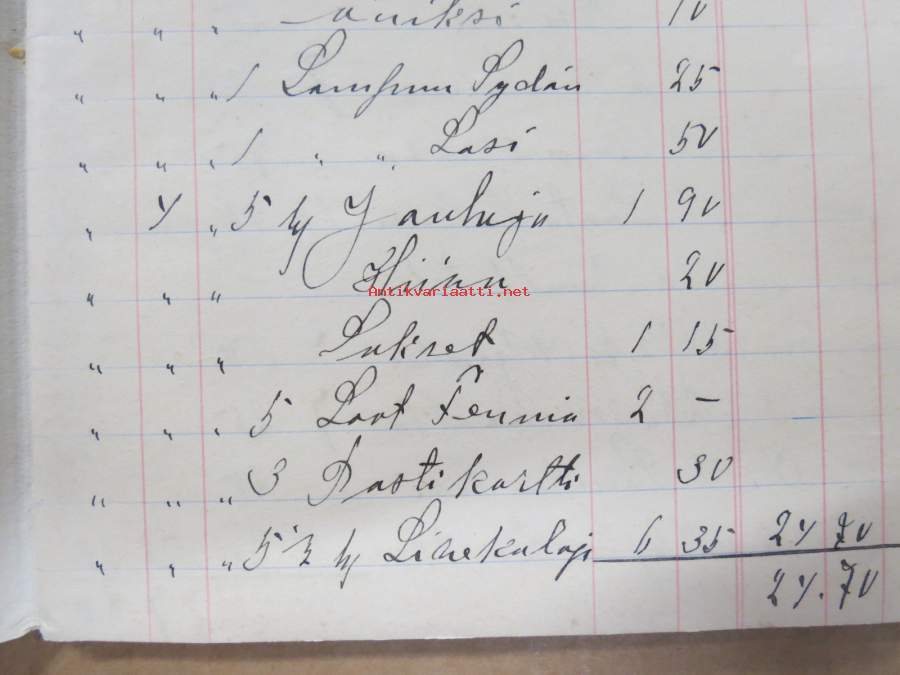 " " "
" " " 1 Lampun Sydän 25
" " " 1 " " Lasi 50
" 4 " 5 kg Jauhoja 1 90
" " " Hiiva 20
Antikvariaatti.net
" " " Sukset 1 15
" " " 5 Laat Fennia 2 –
" " " 3 Postikortti 30
" " " 5 ½ kg Lipeekaloja 6 35 24 70
24.70